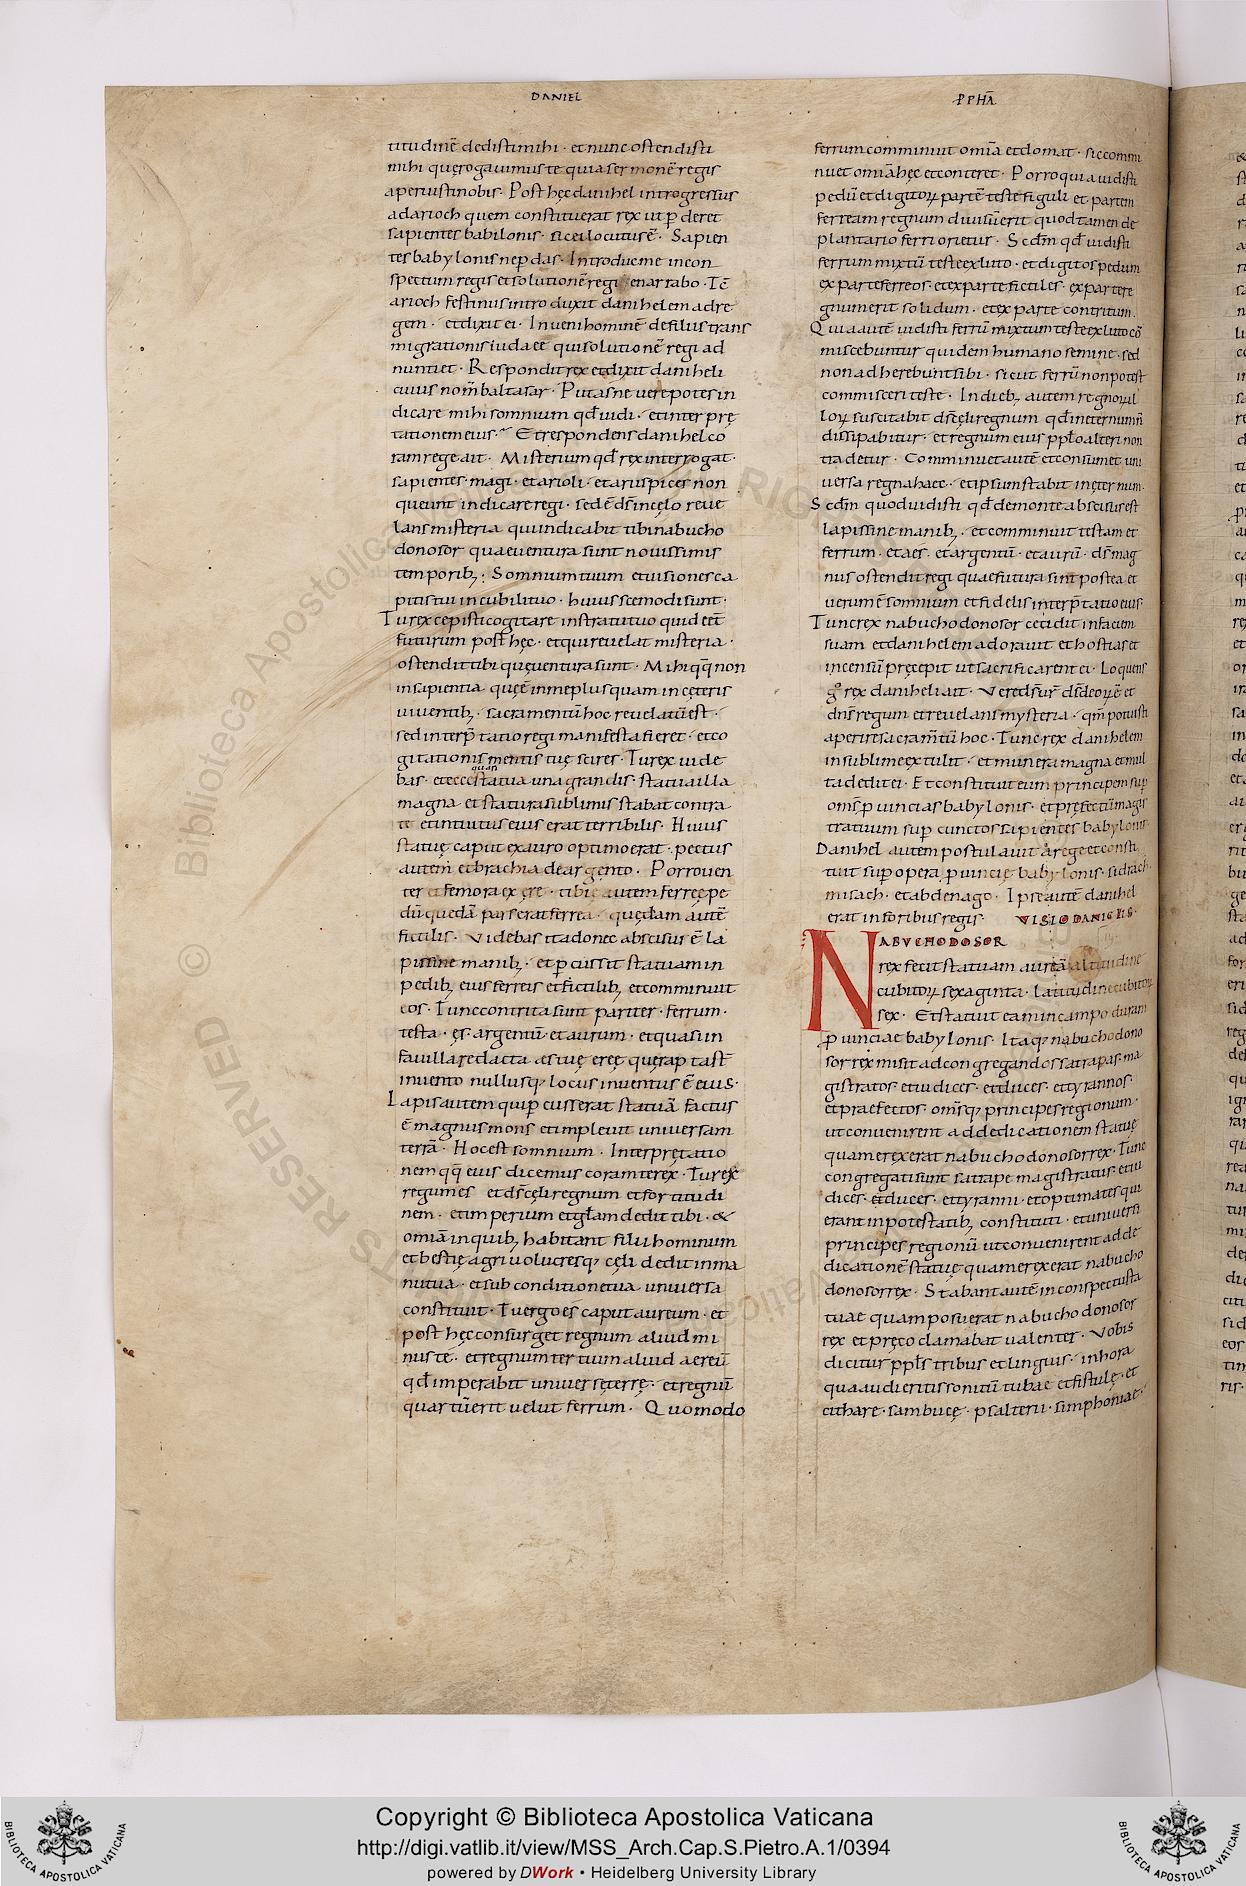 DANIEL
PPHA̅
titudinē dedisti mihi · et nunc ostendisti
mihi quę rogavimus te quia sermonē regis
aperuisti nobis · Post hęc danihel ingressus
ad arioch quem constituerat rex ut p̱deret
sapientes babilonis · sic ei locutus ē · Sapien
tes babylonis ne p̱das · Introduc me in con
spectum regis et solutionē regi enarrabo · Tc̄
arioch festinus introduxit danihelem ad re
gem · et dixit ei · Inveni hominē de filiis trans
migrationis iudaeę qui solutionē regi ad
nuntiet · Respondit rex et dixit daniheli
cuius nom̄ baltasar · Putasne vere potes in
dicare mihi somnium qđ vidi · et interprę
tationem eius · Et respondens danihel co
ram rege ait · Misterium qđ rex interrogat ·
sapientes · magi · et arioli · et aruspices non
queunt indicare regi · sed ē ds̄ in cęlo reve
lans misteria qui indicabit tibi nabucho
donosor quae ventura sunt novissimis
temporib; · Somnium tuum et visiones ca
pitis tui in cubili tuo · huiuscemodi sunt ·
Tu rex cepisti cogitare in stratu tuo quid eēt
futurum post hęc · et qui revelat misteria ·
ostendit tibi quę ventura sunt · Mihi qq̄ non
in sapientia quę ē in me plus quam in cęteris
viventib; · sacramentū hoc revelatū est ·
sed ut interp̄tatio regi manifesta fieret · et co
gitationis mentis tuę scires · Tu rex vide
quasi
bas · et ecce statua una grandis · statua illa
magna et statura sublimis stabat contra
te et intuitus eius erat terribilis · Huius
statuę caput ex auro optimo erat · pectus
autem̄ et brachia de argento · Porro ven
ter et femora ex ęre · tibię autem ferreę pe
dū quedā pars erat ferrea · quędam autē
fictilis · Videbas ita donec abscisus ē la
pis sine manib; · et p̱cussit statuam in
pedib; eius ferreis et fictilib; et comminuit
eos · Tunc contrita sunt pariter · ferrum ·
testa · ęs · argentū · et aurum · et quasi in
favilla redacta ęstivę areę quę rapta st̄
invento nullusq; locus inventus ē eius ·
Lapis autem qui p̱cusserat statuā factus
ē magnus mons et implevit universam
terrā · Hoc est somnium · Interpretatio
nem qq̄ eius dicemus coram te rex · Tu rex
regum es et ds̄ cęli regnum et fortitudi
nem · et imperium et gl̄am dedit tibi · &
omīa in quib; habitant filii hominum
et bestię agri volucresq; cęli dedit in ma
nu tua · et sub conditione tua universa
constituit · Tu ergo es caput aureum · et
post hęc consurget regnum aliud mi
nus te · et regnum tertium aliud aereū
qđ imperabit universę terrę · et regnū
quartū erit velut ferrum · Quomodo
ferrum comminuit omīa et domat · sic commi
nuet omīa hęc et conteret · Porro quia vidisti
pedū et digitorꝝ partē testę figuli et partem
ferream regnum divisū erit quod tamen de
plantario ferri orietur · Scd̄m qđ vidisti
ferrum mixtū testę ex luto · et digitos pedum
ex parte ferreos · et ex parte fictiles · ex parte re
gnum erit solidum · et ex parte contritum ·
Quia autē vidisti ferrū mixtum testę ex luto cō
miscebuntur quidem humano semine · sed
non adherebunt sibi · sicut ferrū non potest
commisceri testę · In dieb; autem regnorꝝ il
lorꝝ suscitabit ds̄ cęli regnum qđ in eternum
dissipabitur · et regnum eius pplo alteri non
tradetur · Comminuet autē et consumet uni
versa regna haec · et ipsum stabit in ęternum ·
Scd̄m quod vidisti qđ de monte abscisus est
lapis sine manib; · et comminuit testam et
ferrum · et aes · et argentū · et aurū · ds̄ mag
nus ostendit regi quae futura sunt postea et
verum ē somnium et fidelis interp̄tatio eius ·
Tunc rex nabuchodonosor cecidit in faciem
suam et danihelem adoravit et hostias et
incensū pręcepit ut sacrificarent ei · Loquens
gͦ rex daniheli ait · Vere ds̄ vr̄ ds̄ deorꝝ ē et
dns̄ regum et revelans mysteria · qm̄ potuisti
aperire sacram̄tū hoc · Tunc rex danihelem
in sublime extulit · et munera magna et mul
ta dedit ei · Et constituit eum principem sup̱
oms̄ p̱vincias babylonis · et pręfectū magis
tratuum sup̱ cunctos sapientes babylonis
Danihel autem postulavit a rege et consti
tuit sup̱ opera p̱vincię babylonis · sidrach ·
misach · et abdenago · Ipse autē danihel
erat in foribus regis · VISIO DANIELIS ·
NABUCHODOSOR
rex fecit statuam aureā altitudine
cubitorꝝ sexaginta · latitudine cubitorꝝ
sex · Et statuit eam in campo duram
p̱vinciae babylonis · Itaq; nabuchodono
sor rex misit ad congregandos satrapas · ma
gistratos · et iudices · et duces · et tyrannos ·
et praefectos · omsq; principes regionum ·
ut convenirent ad dedicationem statuę
quam erexerat nabuchodonosor rex · Tunc
congregati sunt satrape magistratus · et iu
dices · et duces · et tyranni · et optimates qui
erant in potestatib; constituti · et universi
principes regionū ut convenirent ad de
dicationē statuę quam erexerat nabucho
donosor rex · Stabant autē in conspectu sta
tuae quam posuerat nabuchodonosor
rex et pręco clamabat valenter · Vobis
dicitur ppl̄s tribus et linguis · in hora
qua audieritis sonitū tubae et fistulę · et
citharę · sambucę · psalterii · simphoniae ·
Copyright © Biblioteca Apostolica Vaticana
http://digi.vatlib.it/view/MSS_Arch.Cap.S.Pietro.A.1/0394
powered by DWork • Heidelberg University Library